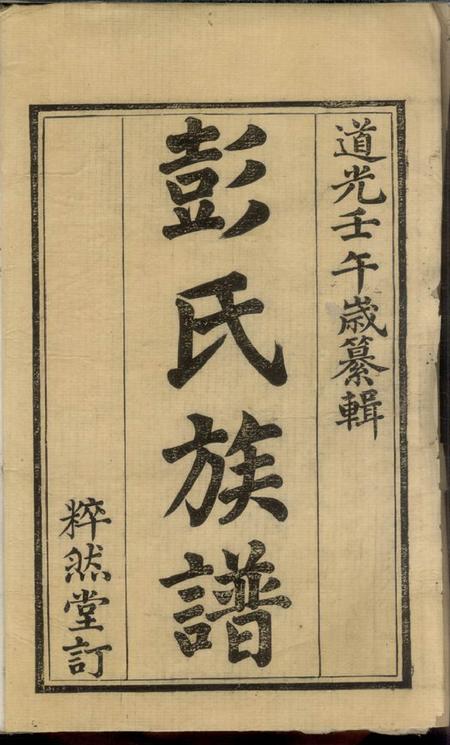 道光壬午歳纂輯
彭氏族譜
粹然堂訂